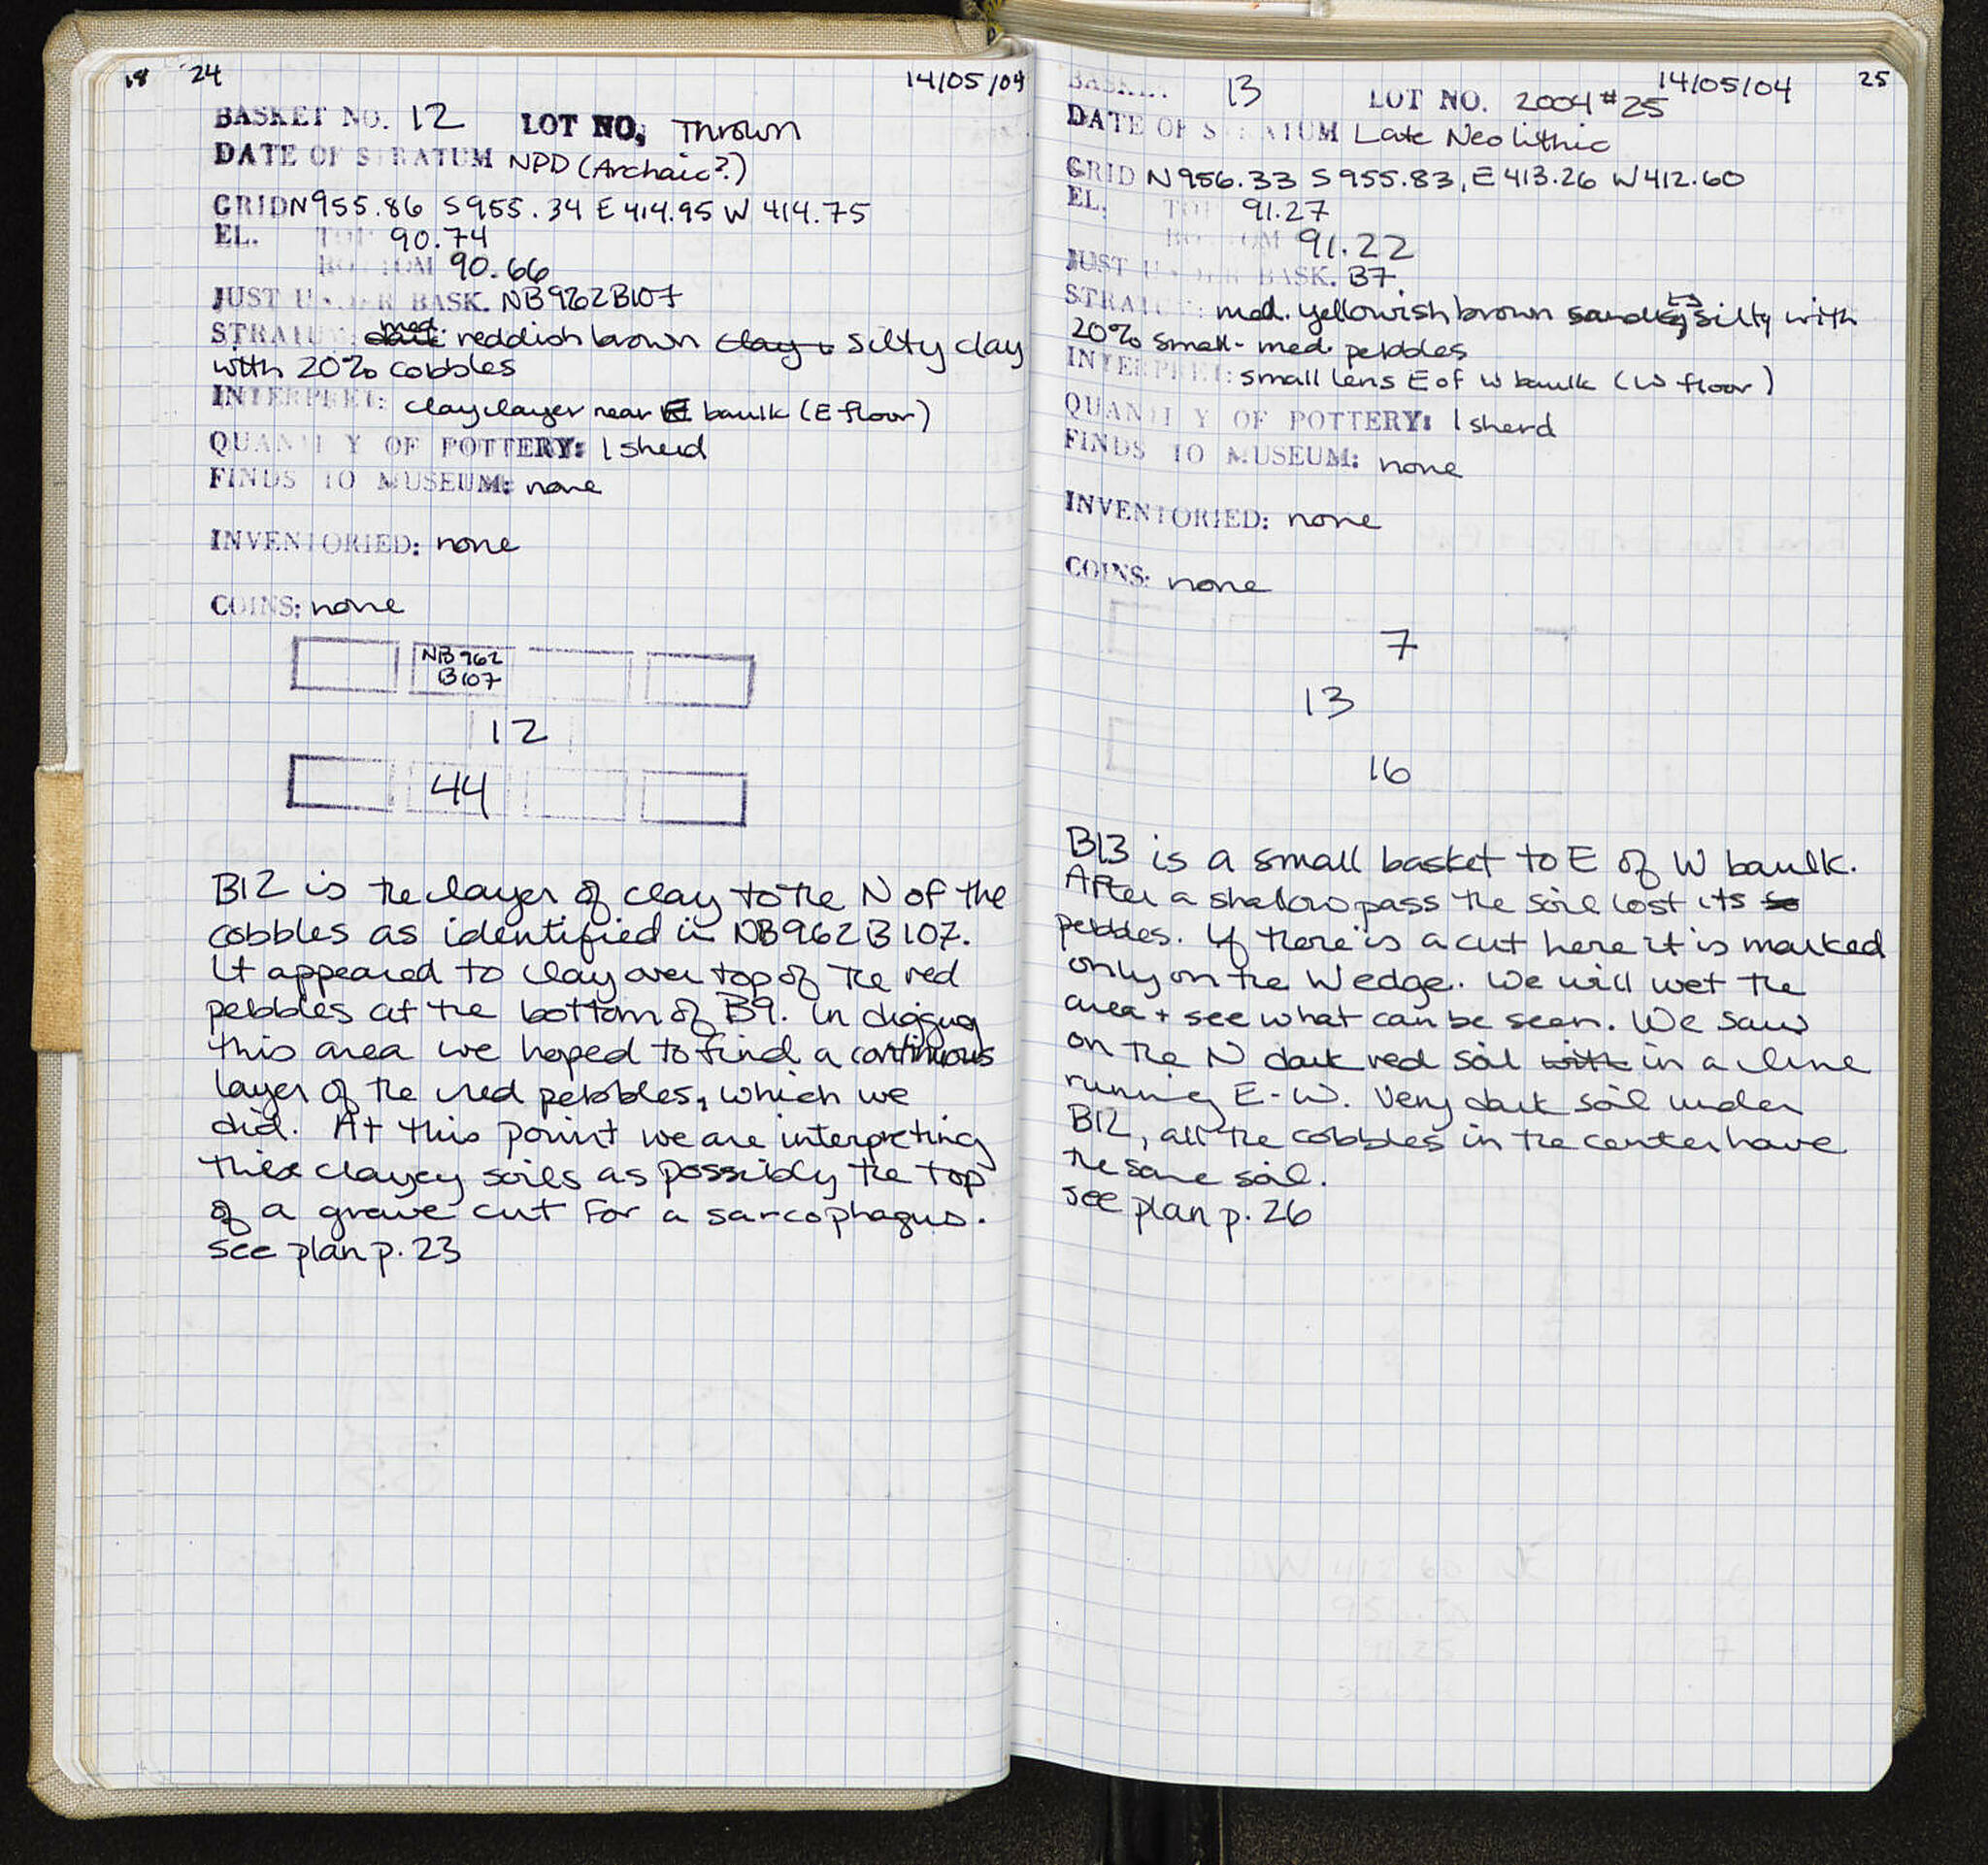 18 24 14/05/04
BASKET NO. 12 LOT NO. Thrown
DATE OF STRATUM NPD (Archaic?)
GRID N955.86 S955.34 E414.95 W414.75
EL. TOP 90.74
BOTTOM 90.66
JUST UNDER BASK. NB962B107
STRATUM: dark med. reddish brown clay silty clay
with 20% cobbles
INTERPRET: clay layer near E baulk (E floor)
QUANTITY OF POTTERY: 1 sherd
FINDS TO MUSEUM: none
INVENTORIED: none
COINS: none
NB962
B107
12
44
B12 is the layer of clay to the N of the
cobbles as identified in NB962 B107.
It appeared to clay over top of the red
pebbles at the bottom of B9. In digging
this area we hoped to find a continuous
layer of the red pebbles, which we
did. At this point we are interpreting
these clayey soils as possibly the top
of a grave cut for a sarcophagus.
see plan p. 23
14/05/04 25
BASKET 13 LOT NO. 2004 #25
DATE OF STRATUM Late Neolithic
GRID N956.33 S955.83, E413.26 W412.60
EL. TOP 91.27
BOTTOM 91.22
JUST UNDER BASK. B7.
STRATUM: med. yellowish brown sandy silty with
20% small-med. pebbles
INTERPRET: small lens E of W baulk (W floor)
QUANTITY OF POTTERY: 1 sherd
FINDS TO MUSEUM: none
INVENTORIED: none
COINS: none
7
13
16
B13 is a small basket to E of W baulk.
After a shallow pass the soil lost its so
pebbles. If there is a cut here it is marked
only on the W edge. We will wet the
area + see what can be seen. We saw
on the N dark red soil with in a line
running E-W. Very dark soil under
B12, all the cobbles in the center have
the same soil.
see plan p. 26